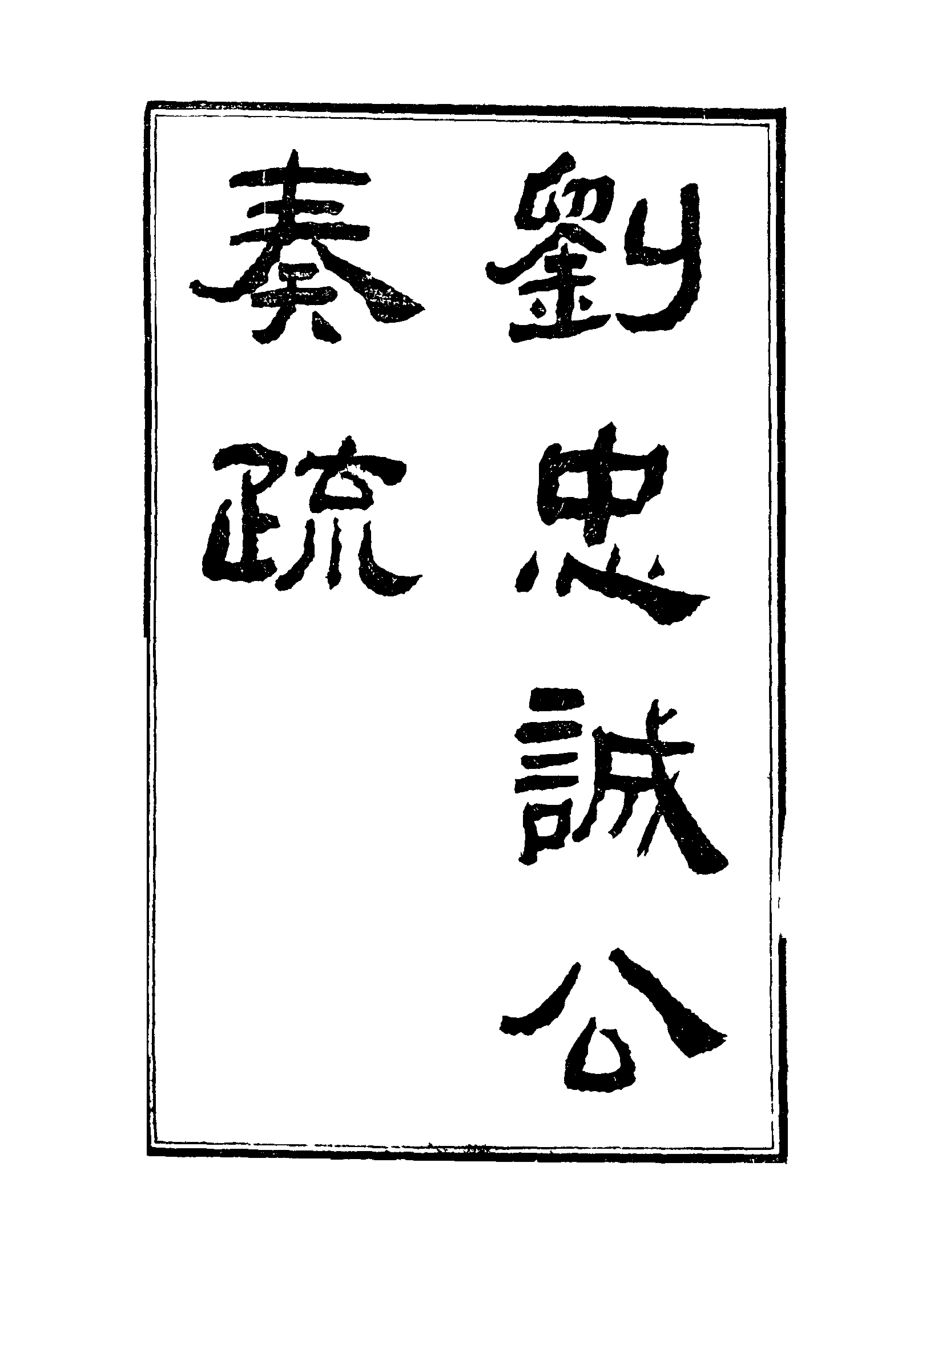 劉忠誠公
奏疏